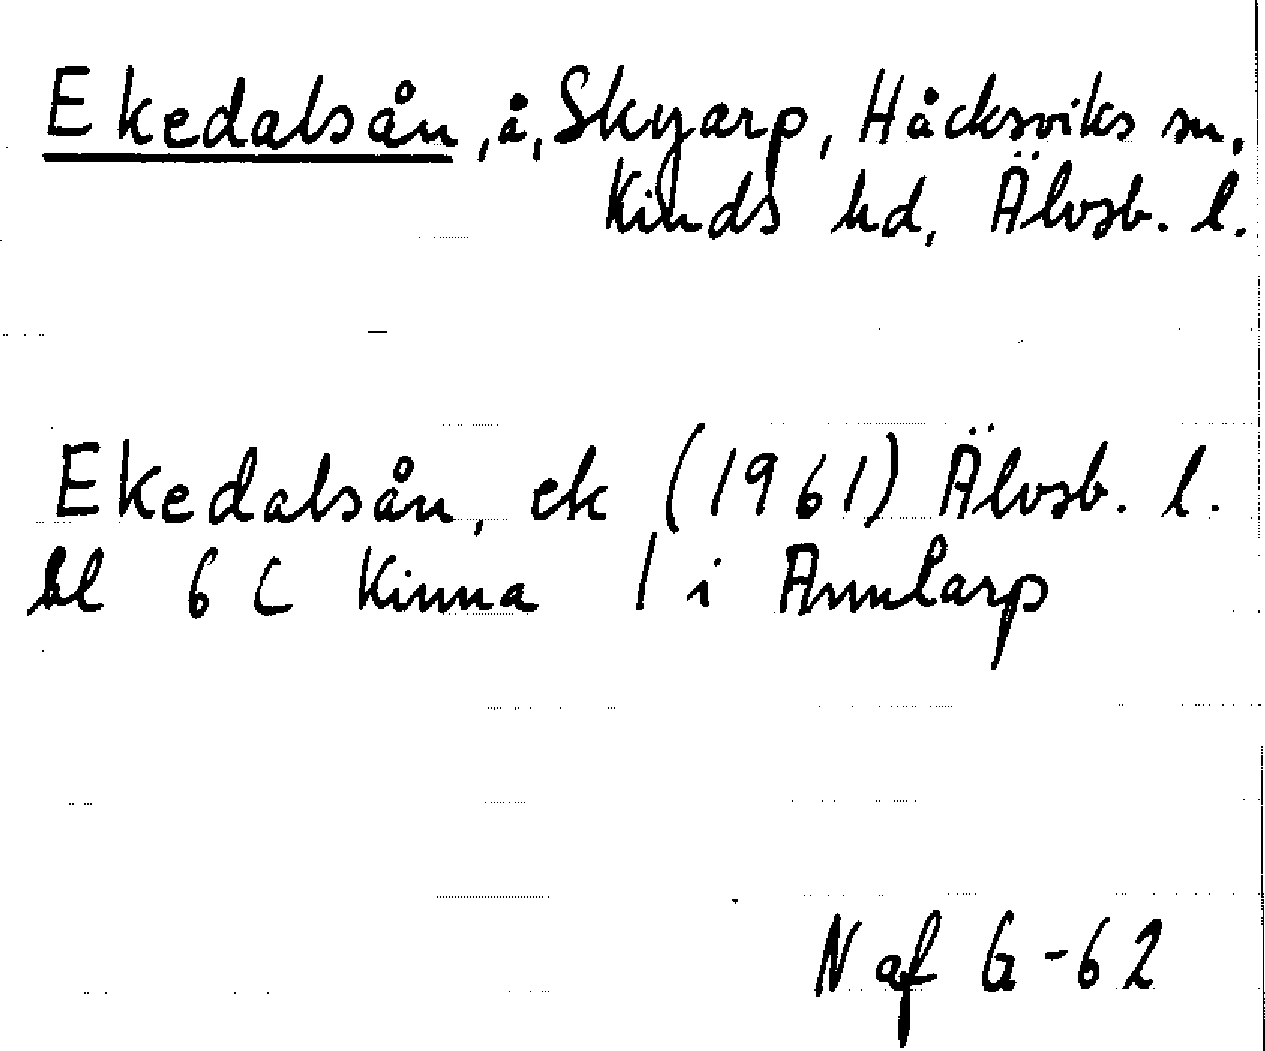 Ekedalsån, å, Skyarp, Håcksviks sn,
Kinds hd, Älvsb. l.
Ekedalsån, ek (1961) Älvsb. l.
bl 6 C Kinna / i Annlarp
N af G-62